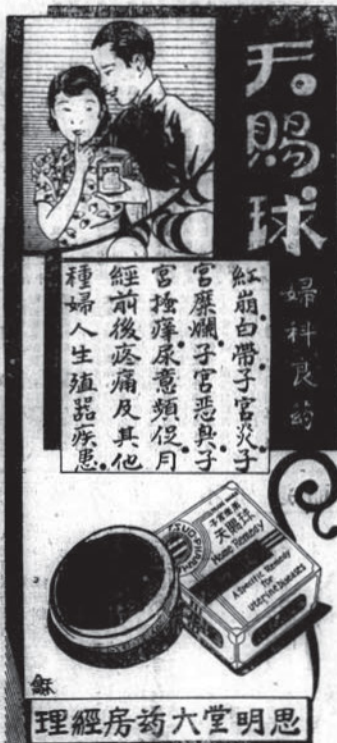 天賜球
婦科良葯
紅崩白帶子宮炎子
宮糜爛子宮惡臭子
宮搔癢尿意頻促月
經前後疼痛及其他
種婦人生殖器疾患
天賜球
Home Remedy
A Specific Remedy
for
uterine Diseases
穌
思明堂大葯房經理